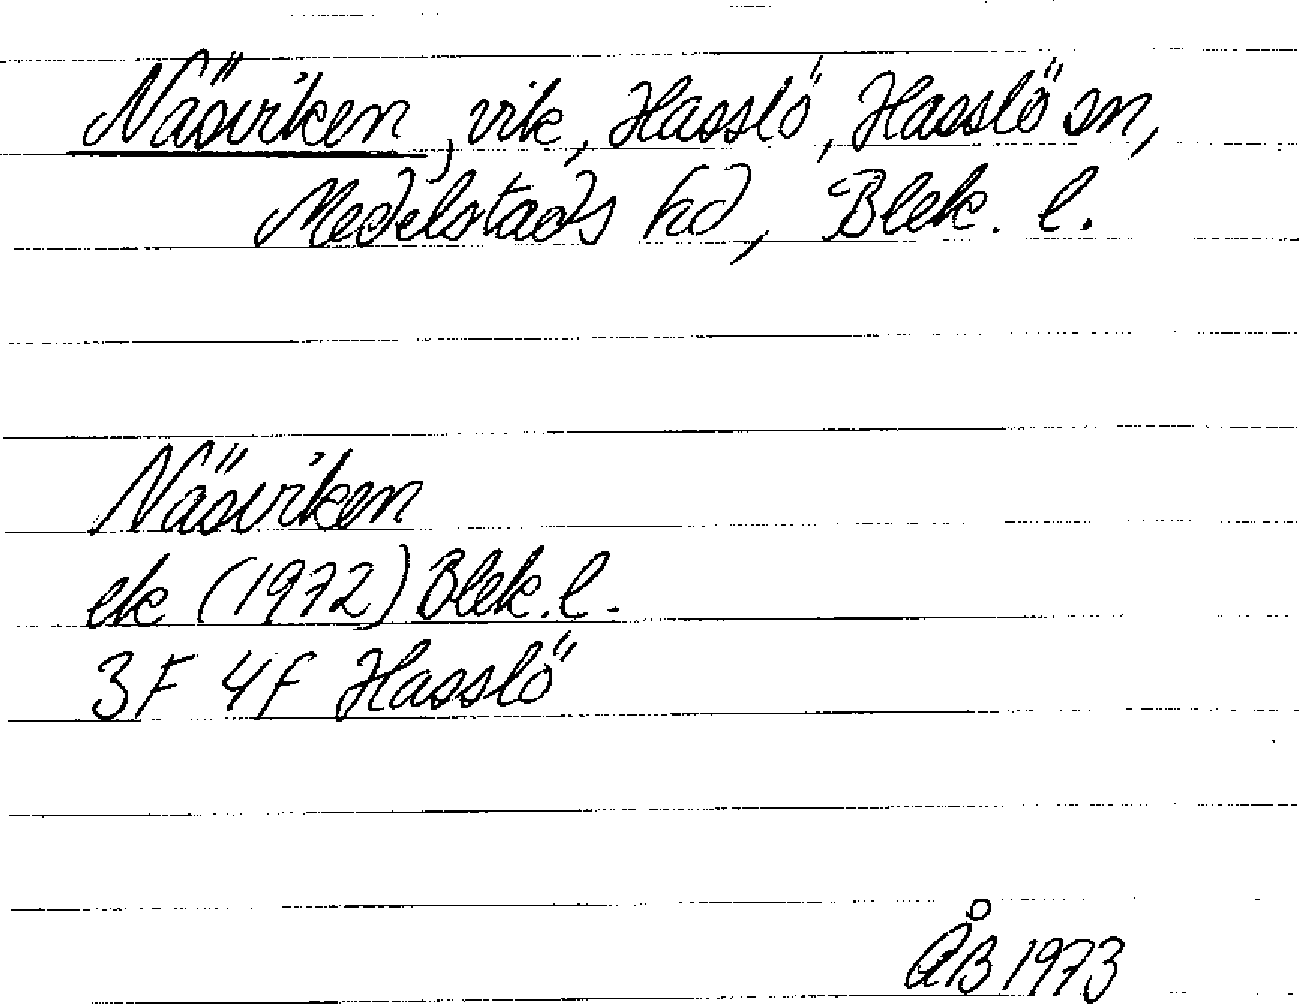 Näsviken, vik, Hasslö, Hasslö sn,
Medelstads hd, Blek. l.
Näsviken
ek (1972) Blek. l.
3F 4f Hasslö
ÅB 1973